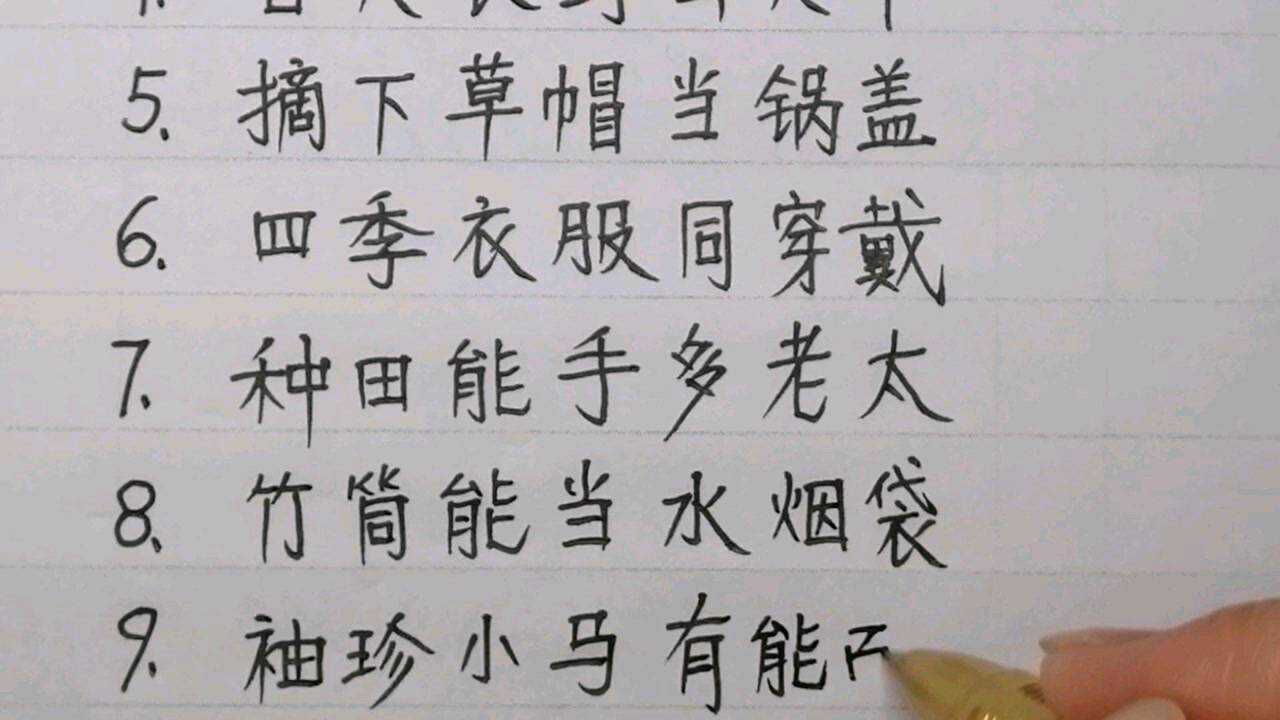 5. 摘下草帽当锅盖
6. 四季衣服同穿戴
7. 种田能手多老太
8. 竹筒能当水烟袋
9. 袖珍小马有能